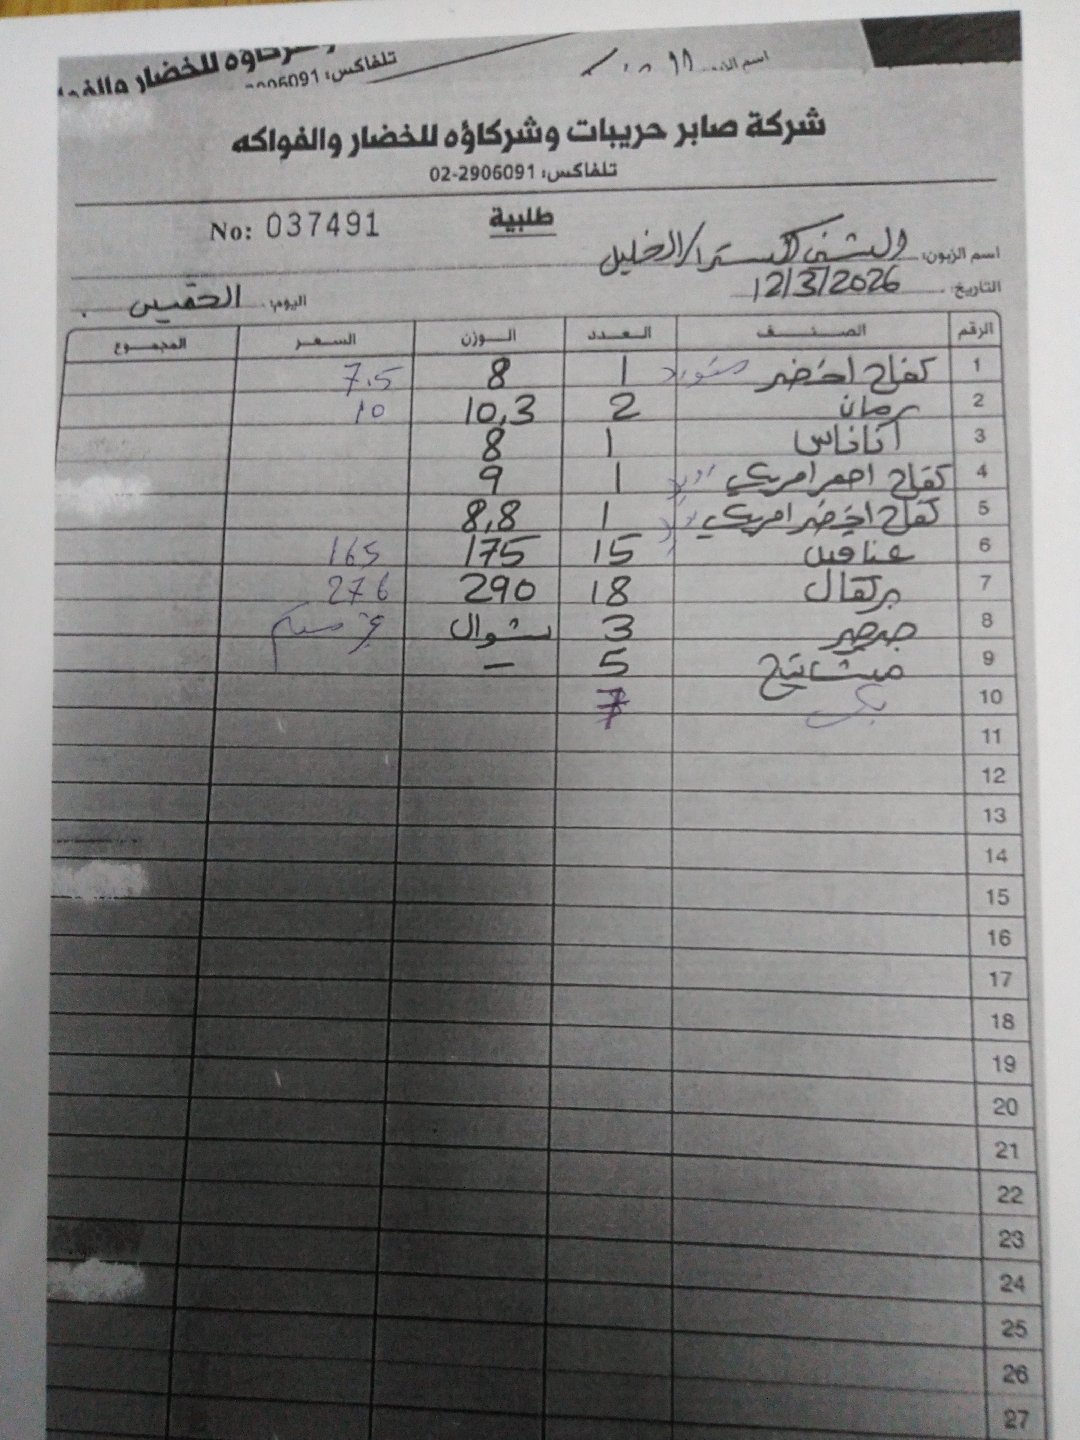 وشركاؤه للخضار والفواكه
تلفاكس: 2906091
شركة صابر حريبات وشركاؤه للخضار والفواكه
تلفاكس: 02-2906091
No: 037491
طلبية
اسم الزبون: / الخليل
التاريخ: 12/3/2026
اليوم: الخميس
الرقم الصنف العدد الوزن السعر المجموع
1 تفاح اخضر 1 8 7.5
2 رمان 2 10,3 10
3 اناناس 1 8
4 تفاح احمر امريكي 1 9
5 تفاح اخضر امريكي 1 8,8
6 15 175 165
7 برتقال 18 290 276
8 3 شوال
9 مشاتيح 5 –
10 7
11
12
13
14
15
16
17
18
19
20
21
22
23
24
25
26
27